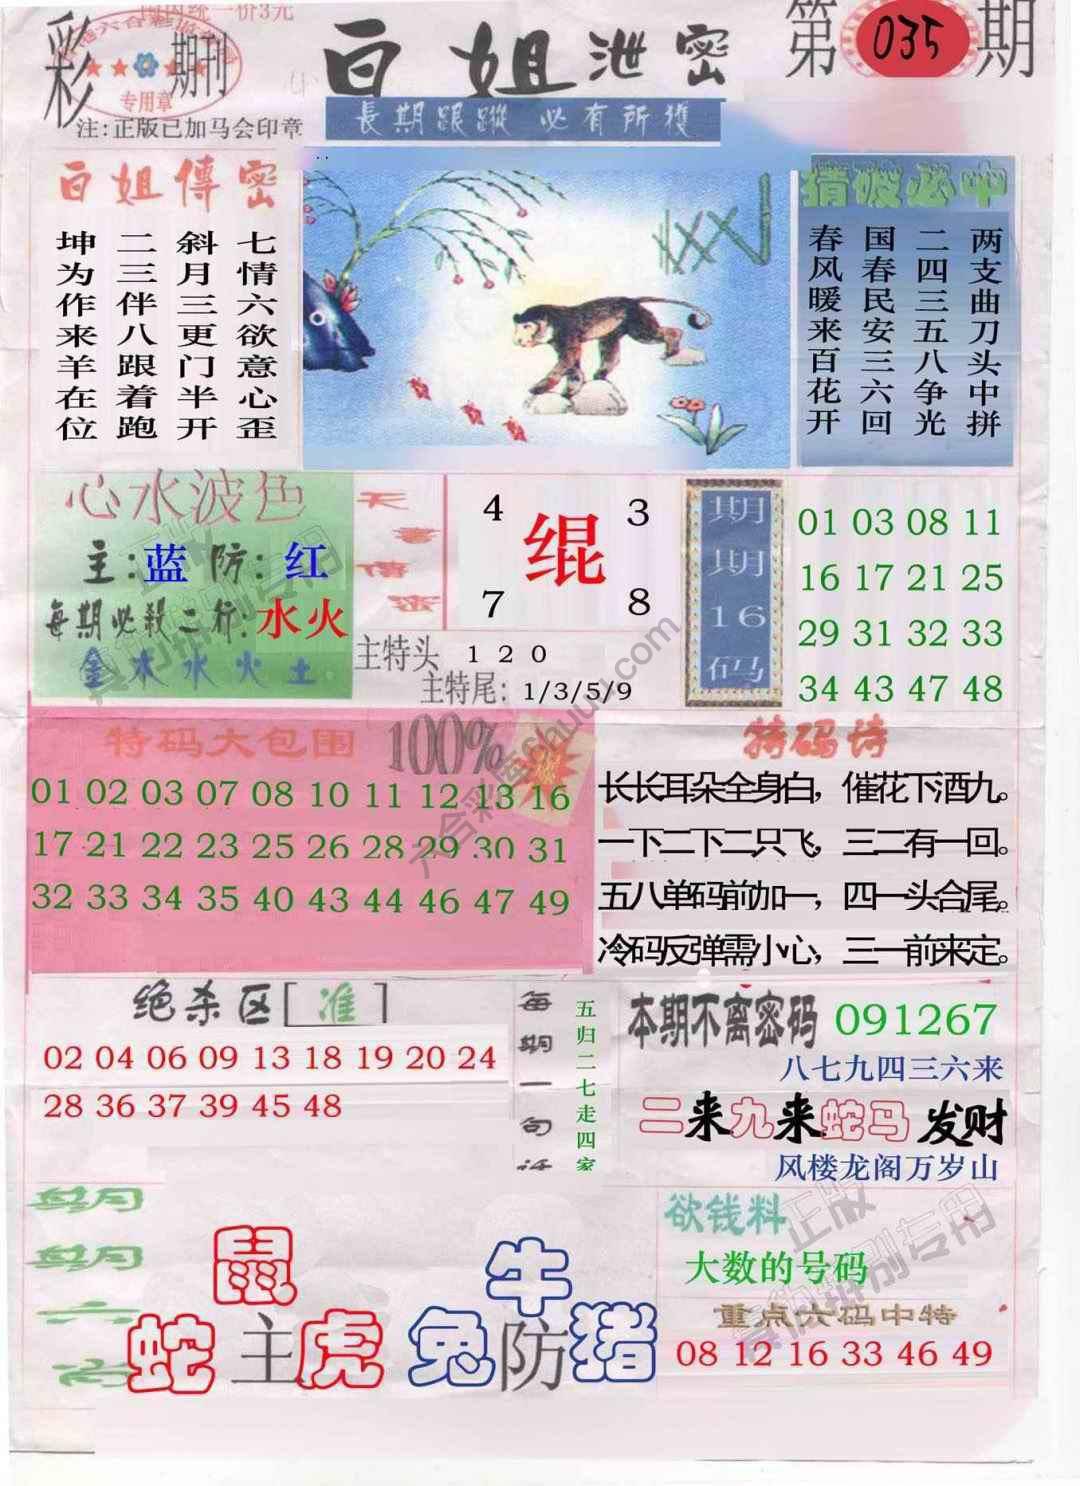 国内统一价3元
彩期刊
六合彩
专用章
注:正版已加马会印章
白姐泄密
第035期
長期跟蹤 必有所獲
白姐傳密
七情六欲意心歪
斜月三更门半开
二三伴八跟着跑
坤为作来羊在位
猜破必中
两支曲刀头中拼
二四三五八争光
国春民安三六回
春风暖来百花开
心水波色
主:蓝 防:红
每期必殺二行:水火
金木水火土
天書傳密
4 3
绲
7 8
主特头 1 2 0
主特尾: 1/3/5/9
期期16码
01 03 08 11
16 17 21 25
29 31 32 33
34 43 47 48
特码大包围 100%
01 02 03 07 08 10 11 12 13 16
17 21 22 23 25 26 28 29 30 31
32 33 34 35 40 43 44 46 47 49
特码诗
长长耳朵全身白，催花下酒九。
一下二下二只飞，三二有一回。
五八单码前加一，四一头合尾。
冷码反弹需小心，三一前来定。
绝杀区[准]
02 04 06 09 13 18 19 20 24
28 36 37 39 45 48
每期一句话
五归二七走四家
本期不离密码 091267
八七九四三六来
二来九来蛇马发财
风楼龙阁万岁山
鼠
蛇主虎
牛
兔防猪
欲钱料
大数的号码
重点六码中特
08 12 16 33 46 49